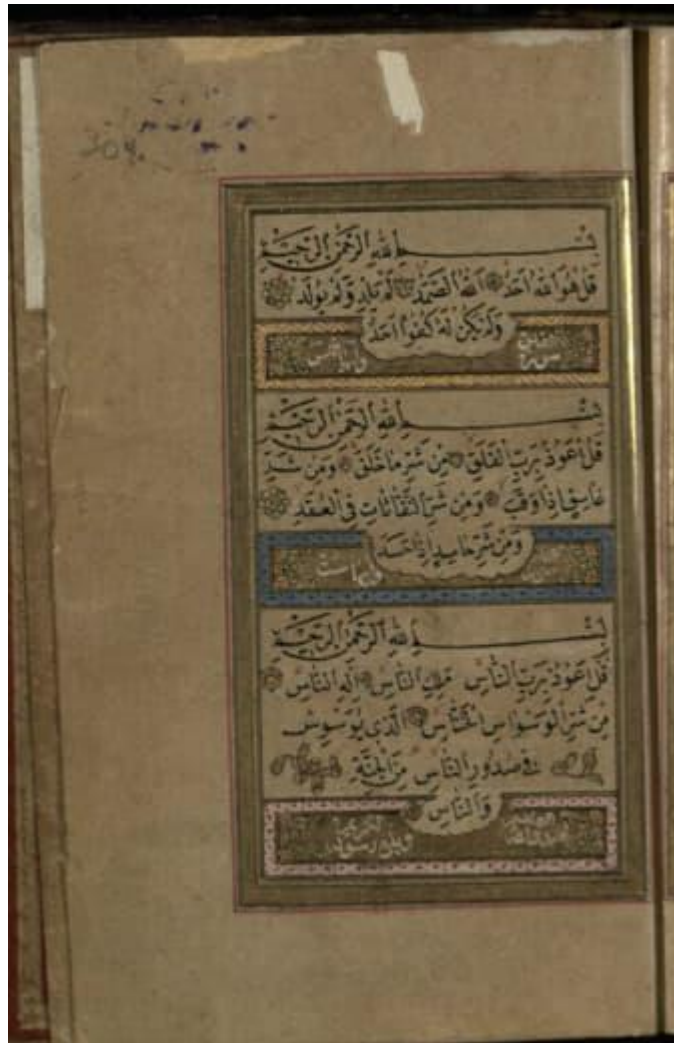 بسم الله الرحمن الرحيم
قل هو الله احد الله الصمد لم يلد ولم يولد
ولم يكن له كفوا احد
سورة
بسم الله الرحمن الرحيم
قل اعوذ برب الفلق من شر ما خلق ومن شر
غاسق اذا وقب ومن شر النفاثات فى العقد
ومن شر حاسد اذا حسد
بسم الله الرحمن الرحيم
قل اعوذ برب الناس ملك الناس اله الناس
من شر الوسواس الخناس الذى يوسوس
فى صدور الناس من الجنة
والناس